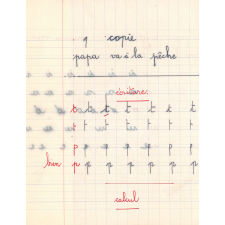 9 copie
papa va à la pêche
écriture
t t t t t t t
t t t t t t t
p p p p p p p
bien p p p p p p p
calcul